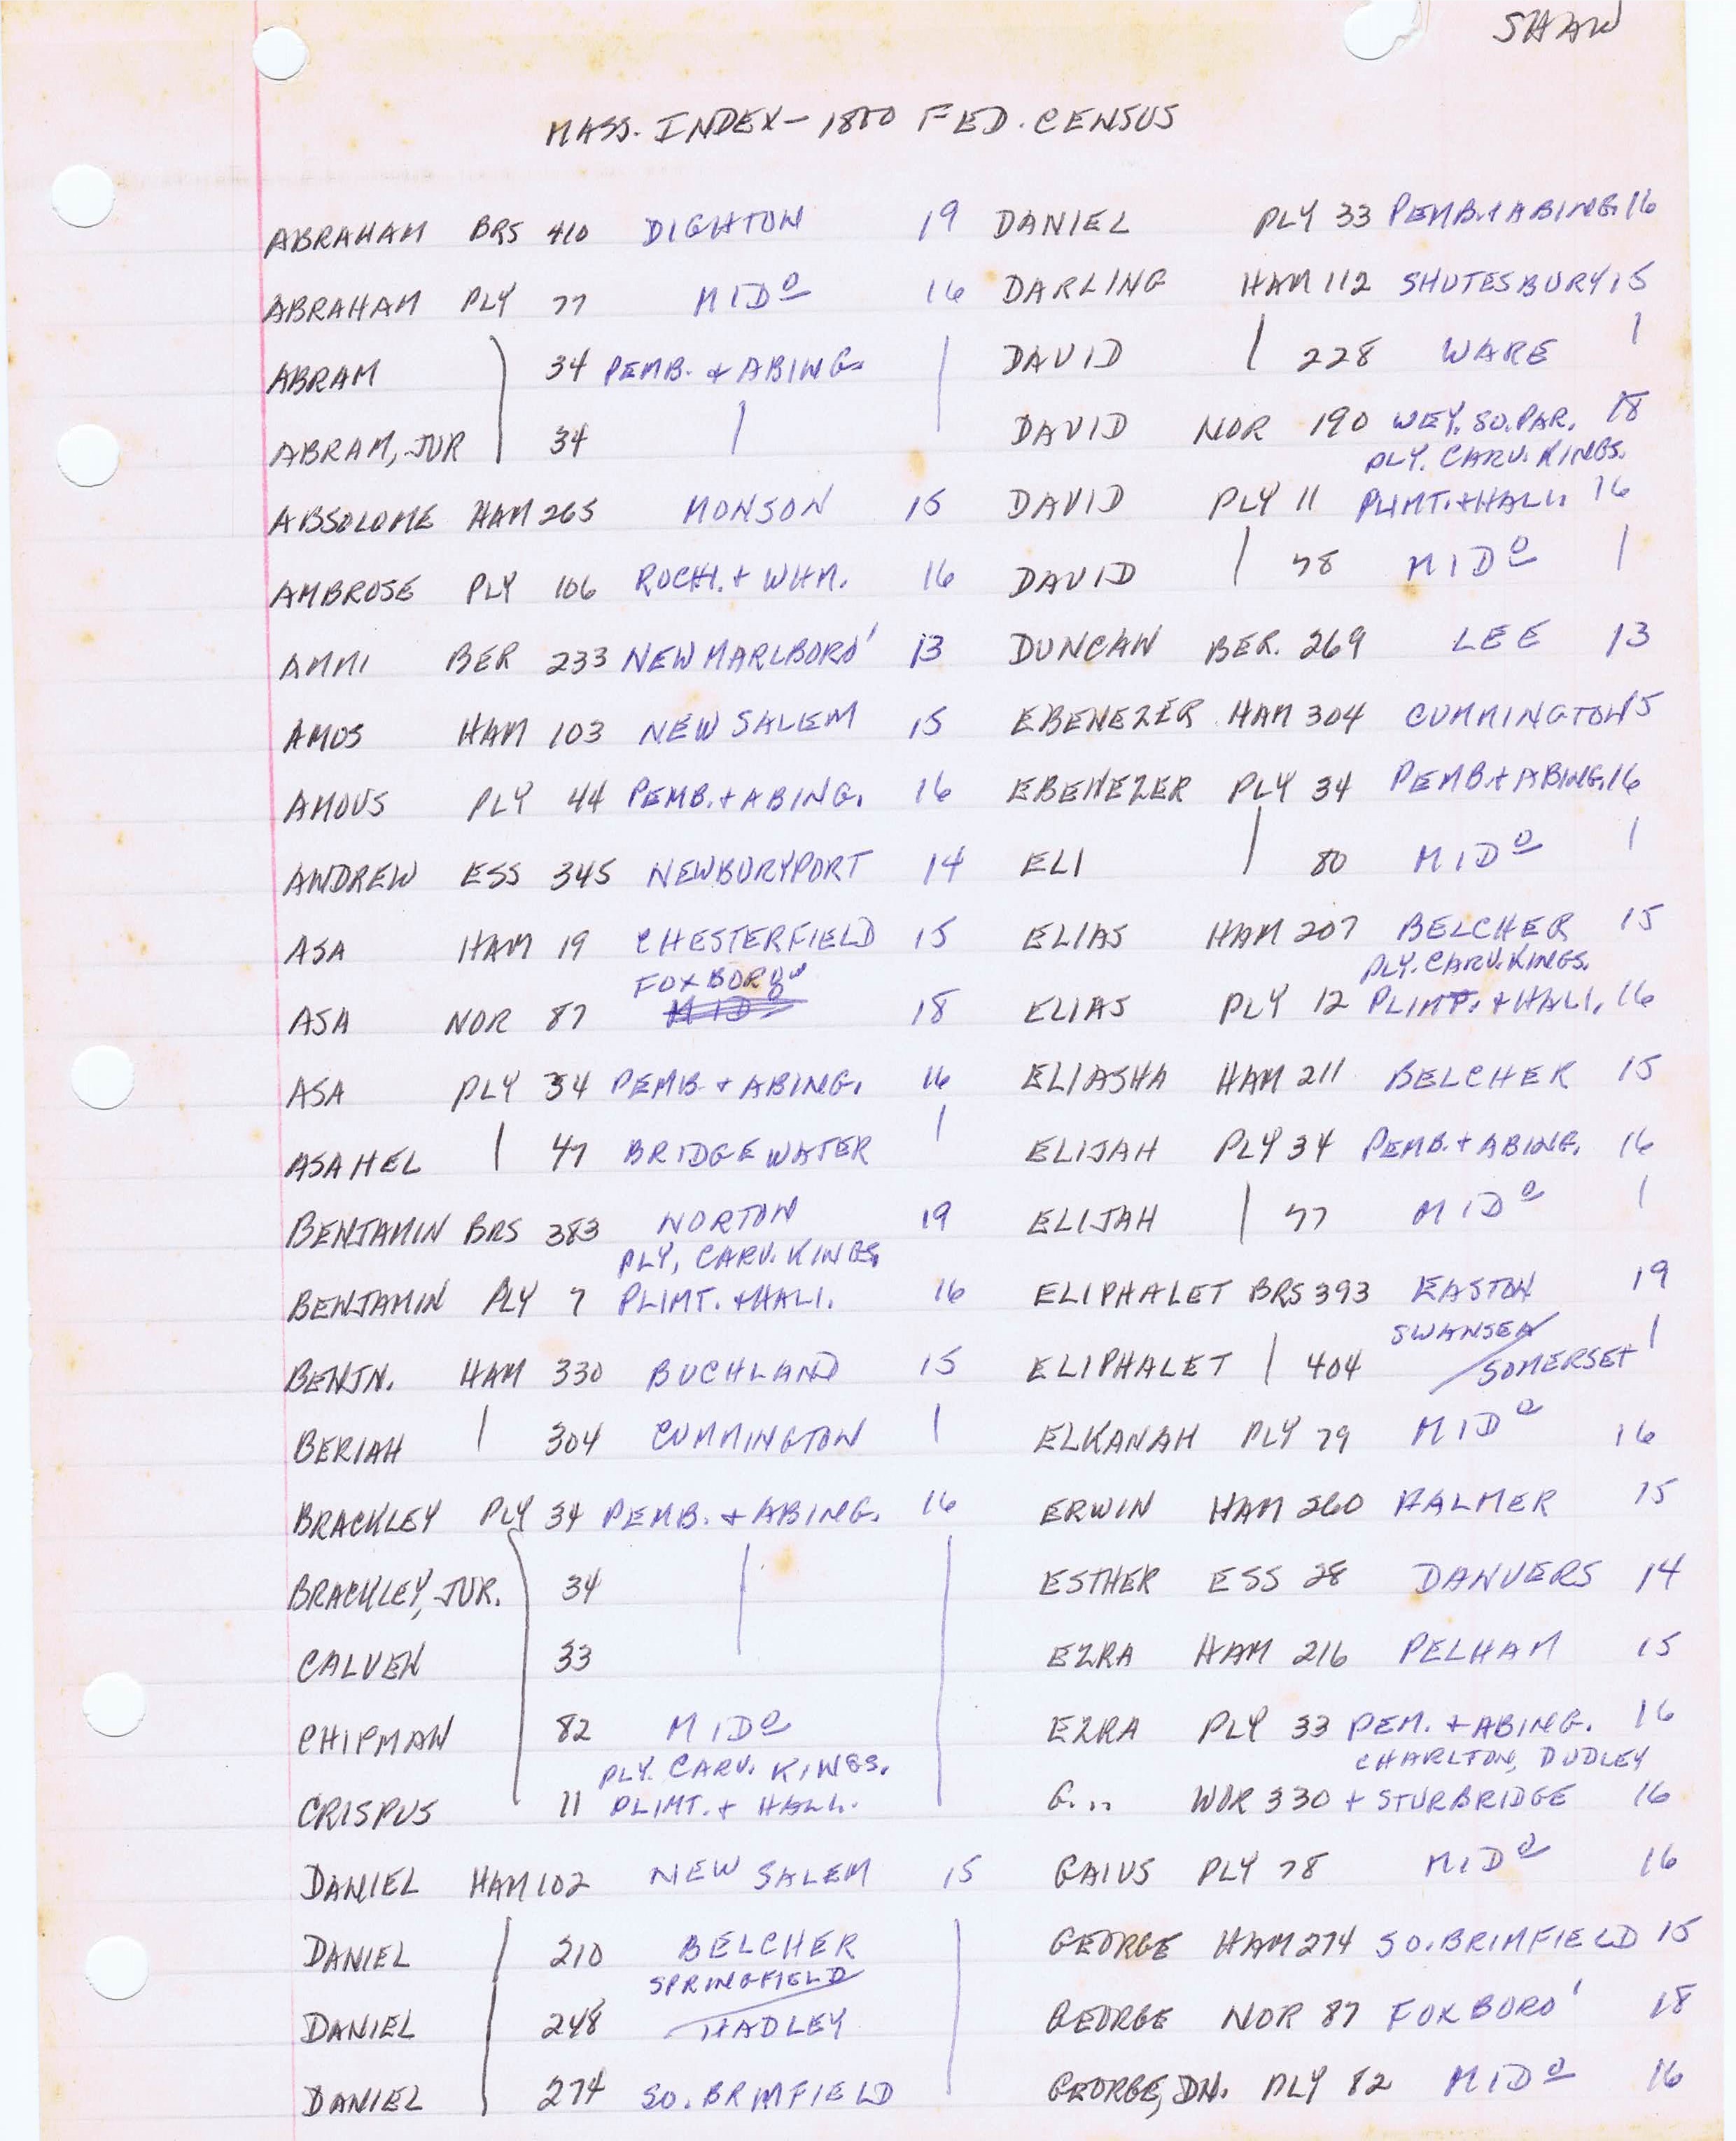 SHAW
MASS. INDEX - 1800 FED. CENSUS
ABRAHAM BRS 410 DIGHTON 19
ABRAHAM PLY 77 MIDO 16
ABRAM 34 PEMB. + ABING.
ABRAM, JUR 34
ABSOLOME HAM 265 MONSON 15
AMBROSE PLY 106 ROCH. + WHM. 16
AMMI BER 233 NEW MARLBORO' 13
AMOS HAM 103 NEW SALEM 15
AMOUS PLY 44 PEMB. + ABING. 16
ANDREW ESS 345 NEWBURYPORT 14
ASA HAM 19 CHESTERFIELD 15
FOXBORO
ASA NOR 87 MIDO 18
ASA PLY 34 PEMB + ABING. 16
ASAHEL 47 BRIDGEWATER
BENJAMIN BRS 383 NORTON 19
PLY, CARV. KINGS.
BENJAMIN PLY 7 PLIMT. + HALI. 16
BENJN. HAM 330 BUCHLAND 15
BERIAH 304 CUMMINGTON
BRACKLEY PLY 34 PEMB. + ABING. 16
BRACKLEY, JUR. 34
CALVEN 33
CHIPMAN 82 MIDO
PLY. CARV. KINGS.
CRISPUS 11 PLIMT. + HALI.
DANIEL HAM 102 NEW SALEM 15
DANIEL 210 BELCHER
SPRINGFIELD
DANIEL 248 HADLEY
DANIEL 274 SO. BRIMFIELD
DANIEL PLY 33 PEMB. + ABING. 16
DARLING HAM 112 SHUTESBURY 15
DAVID 228 WARE
DAVID NOR 190 WEY. SO. PAR. 18
PLY. CARV. KINGS.
DAVID PLY 11 PLIMT. + HALI. 16
DAVID 78 MIDO
DUNCAN BER. 269 LEE 13
EBENEZER HAM 304 CUMMINGTON 15
EBENEZER PLY 34 PEMB + ABING. 16
ELI 80 MIDO
ELIAS HAM 207 BELCHER 15
PLY. CARV. KINGS.
ELIAS PLY 12 PLIMT. + HALI. 16
ELIASHA HAM 211 BELCHER 15
ELIJAH PLY 34 PEMB. + ABING. 16
ELIJAH 77 MIDO
ELIPHALET BRS 393 EASTON 19
SWANSEA/
ELIPHALET 404 SOMERSET
ELKANAH PLY 79 MIDO 16
ERWIN HAM 260 PALMER 15
ESTHER ESS 28 DANVERS 14
EZRA HAM 216 PELHAM 15
EZRA PLY 33 PEM. + ABING. 16
CHARLTON, DUDLEY
G... WOR 330 + STURBRIDGE 16
GAIUS PLY 78 MIDO 16
GEORGE HAM 274 SO. BRIMFIELD 15
GEORGE NOR 87 FOXBORO' 18
GEORGE, DN. PLY 82 MIDO 16